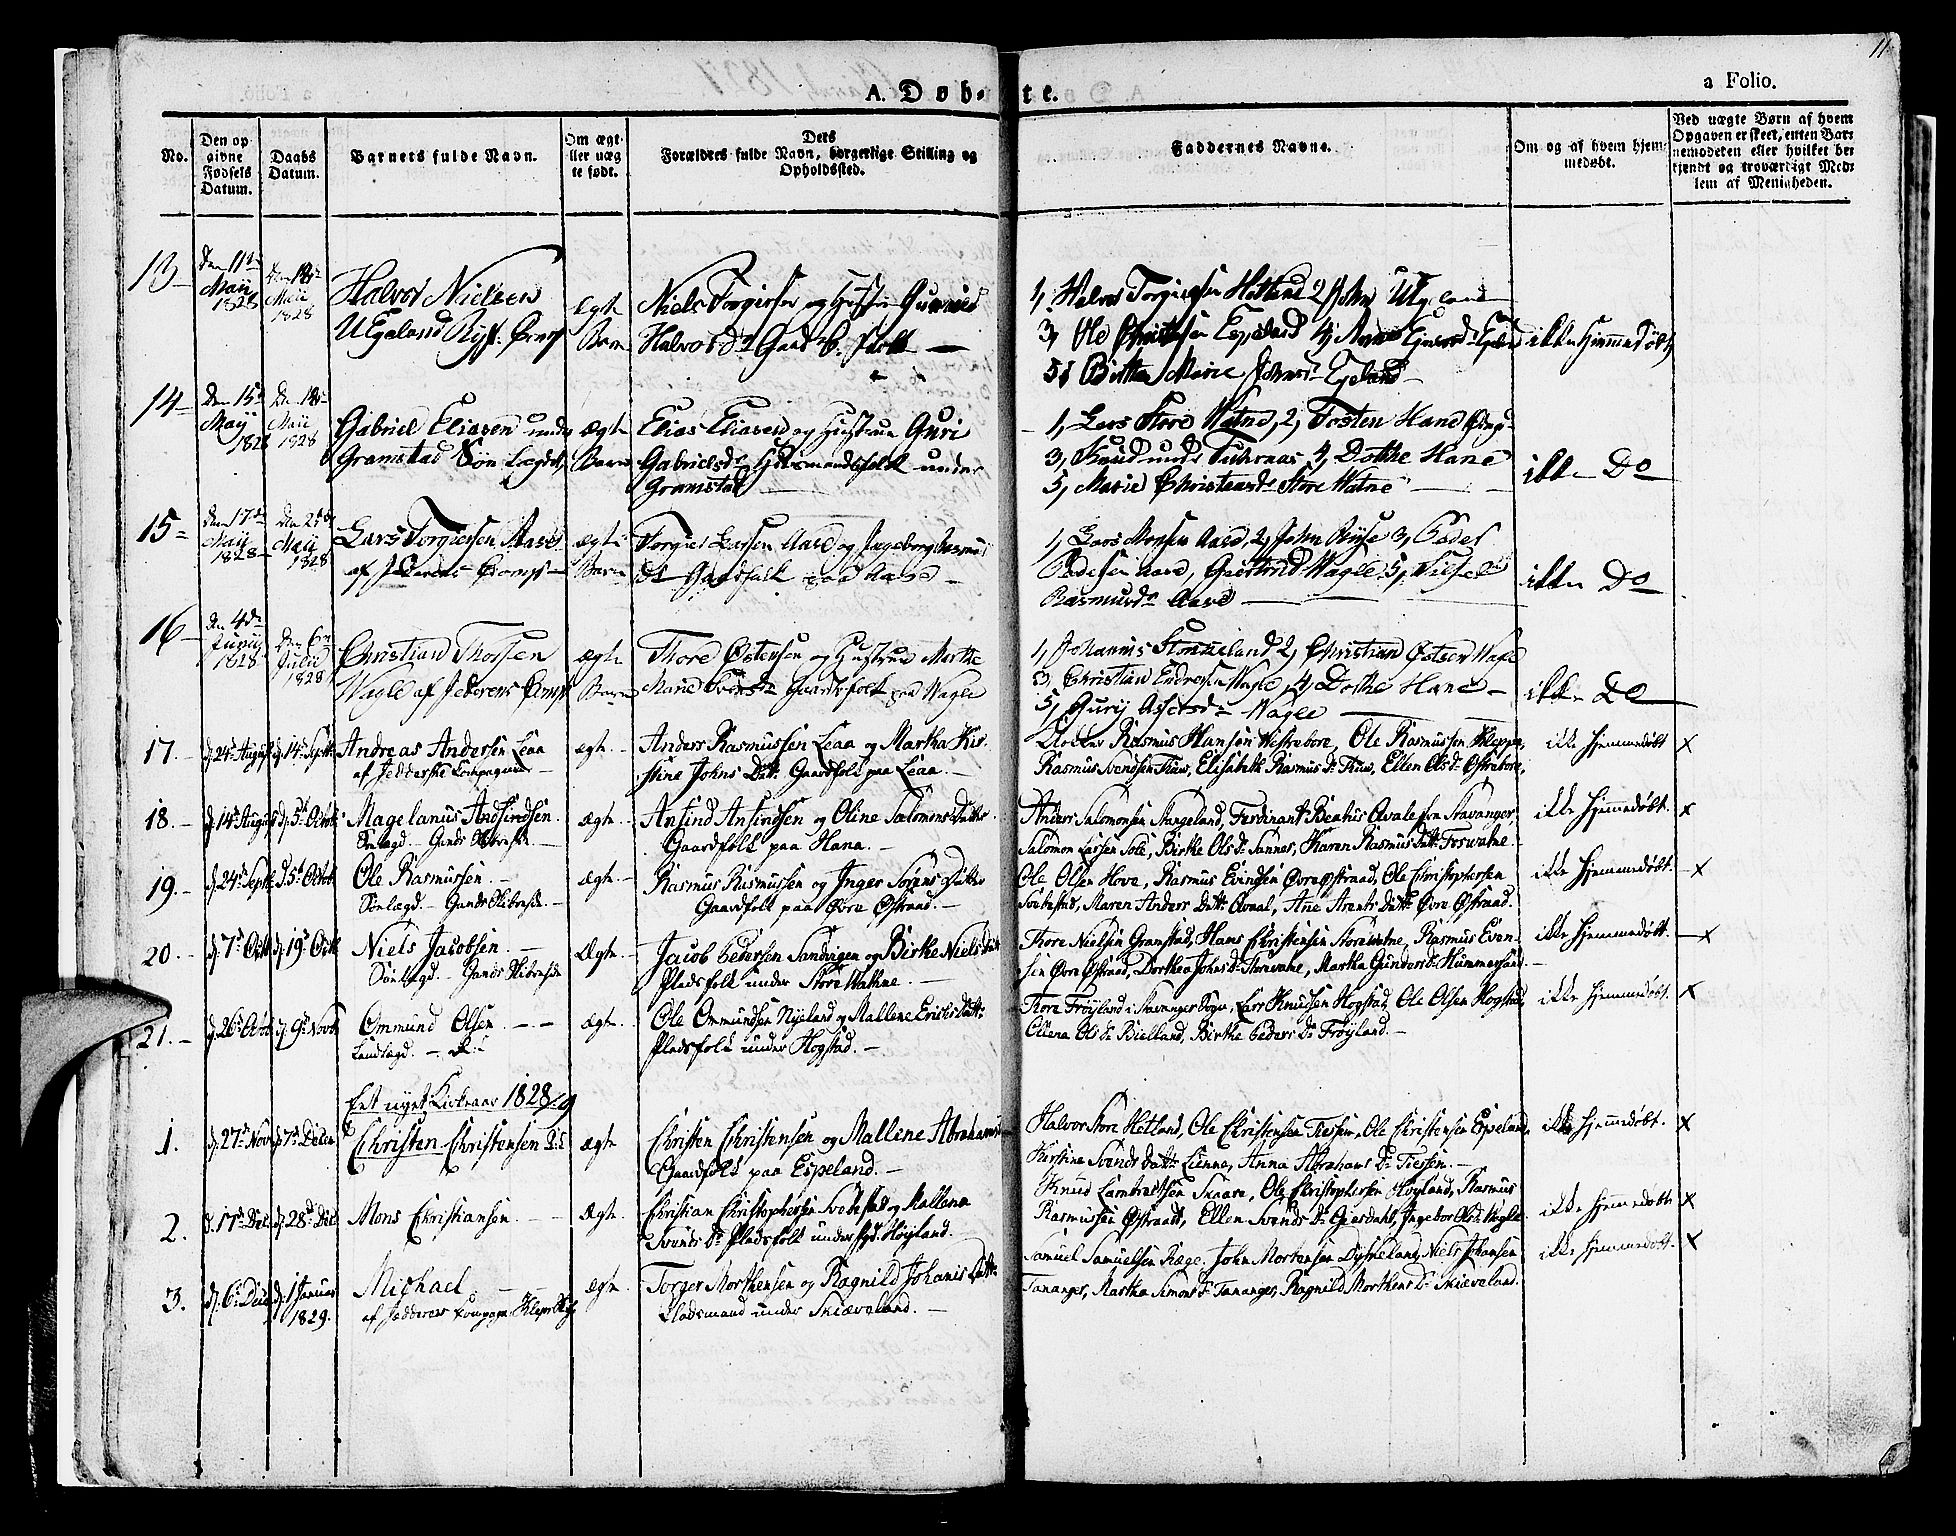 11.
a Folio.
A. Døb-te.
No.
Den op
givne
Fødsels
Datum.
Daabs
Datum.
Barnets fulde Navn.
Om ægt
eller uæg
te født.
Dets
Forældres fulde Navn, borgerlige Stilling og
Opholdssted.
Faddernes Navne.
Om og af hvem hjem
medøbt.
Ved uægte Børn af hvem
Opgaven er skeet, enten Bar-
nemoderen eller hvilket be
kjendt og troværdigt Med-
lem af Menigheden.
13
den 11te
Maii
1828
den 18de
Maii
1828
Halvor Nielsen
Egte
Barn
Niels Torgiersen og Hustru
Halvorsdr Gaardfolk
1, Halvor Torgiersen Hetland 2, John Ueland
3, Ole Christensen Espeland 4,
5, Birthe Marie Johnsdr Ejeland
ikke Hjemmedøbt
14
den 15de
May
1828
den 18de
Maii
1828
Gabriel Eliasen under
Gramstad Søn Lægdet
Ægte
Barn
Elias Eliasen og Hustrue Guri
Gabrielsdr Huusmandsfolk under
Gramstad
1, Lars Store Watne, 2, Tosten Hane
3, Knud under 4, Dorthe Hane
5, Marie Christensdr Store Watne
ikke Do
15
den 17de
Maij
1828
den 25de
Maij
1828
Lars Torgiersen Aase
af Jederens Comp
ægte
Barn
Torgier Larsen Aase og Ingeborg Rasmus
Dr Gaardfolk paa Aase
1, Lars Monsen Aase, 2, John 3, Peder
Pedersen Aase, Giertrud Wagle 5,
Rasmusdr Aase
ikke Do
16
den 4de
Junij
1828
den 6te
Julii
1828
Christian Thorsen
Wagle af Jederens Comp
ægte
Barn
Thore Østensen og Hustrue Marthe
Marie Gaardfolk paa Wagle
1, Johannis 2, Christian Østen Wagle
3, Christian Endresen Wagle, 4, Dorthe Hane
5, Gury Wagle
ikke Do
17.
d. 24d August
d. 14d Septbr
Andreas Andersen Leaa
af Jedderske Compagnie
ægte
Anders Rasmussen Leaa og Martha Kir-
stine Johns Datt. Gaardfolk paa Leaa.
Rasmus Hansen Westrebore, Ole Rasmussen Kleppe,
Rasmus Svendsen Tiaw, Elisabeth Rasmus Dr Tiaw, Ellen Ols Dr Østrebore.
ikke hjemmedøbt
x
18.
d. 14d August
d. 5d Octobr
Magelanus Ansindsen.
Sönlægd. Gands Skibrede.
ægte
Ansind Ansindsen og Oline Salomons Datter
Gaardfolk paa Hana.
Anders Salomonsen Stangeland, Ferdinant Beatus Qvale fra Stavanger,
Salomon Larsen Sole, Birthe Ols Dr Sannes, Karen Rasmus Datt. Foswatne.
ikke hjemmedøbt.
x
19.
d. 24d Septbr
d. 5d Octobr
Ole Rasmussen.
Sönlægd. Gands Skibrede.
ægte
Rasmus Rasmussen og Inger Sörens Datter
Gaardfolk paa Øvre Østraad.
Ole Olsen Hove, Rasmus Evindsen Øvre Østraad, Ole Christophersen
Maren Anders Datt. Ane Arents Datt. Øvre Østraad.
ikke hjemmedøbt.
x
20.
d. 7d Octbr
d. 19d Octbr
Niels Jacobsen.
Sönlægd. Gands Skibrede
Ægte
Jacob Pedersen Sandvigen og Birthe Niels Datt
Pladsfolk under Store Watne.
Thore Nielsen Gramstad, Hans Christensen Storewatne, Rasmus Even-
sen Øvre Østraad, Dorthea Johns Dr Storevatne, Martha Gunders Dr Hummersand.
ikke hjemmedøbt.
x
21.
d. 26d Octobr
d. 9d Novbr
Ommund Olsen.
Landlægd.
ægte
Ole Ommundsen Njeland og Mallene Erichs Datt.
Pladsfolk under Hogstad.
Thore Fröyland i Stavanger Sogn, Lars Knudsen Hogstad, Ole Olsen Hogstad,
Ellena Ols Dr Bielland, Birthe Peders Dr Fröyland.
ikke hjemmedøbt.
x
Et nyet Kirkeaar 1828/9
1.
d. 27d Nov
d. 7d Decem
Christen Christensen
ægte
Christen Christensen og Mallene Abrahams
Gaardfolk paa Espeland.
Halvor Store Hetland, Ole Christensen Tiessen, Ole Christensen Espeland,
Kirstine Svends Datt. Lienne, Anna Abrahams Dr Tiessen.
ikke hjemmedøbt.
x
2.
d. 17d Dec
d. 28d Dec
Mons Christiansen.
Ægte
Christian Christophersen og Mallena
Svends Dr Pladsfolk under Høyland.
Knud Lambrectsen Skaare, Ole Christophersen Høyland, Rasmus
Rasmussen Østraadt, Ellen Svends Dr Giesdahl, Ingebor Ols Dr
ikke hjemmedøbt
x
3.
d. 6d Dec
d. 1 Januar
1829.
Michael
af Jedderens Compagn. Klepp
ægte
Torger Morthensen og Ragnild Johanis Datt.
Pladsmand under Skiæveland.
Samuel Samuelsen Ræge, John Mortensen Dyskeland, Niels Johansen
Tananger, Martha Simons Dr Tananger, Ragnild Morthens Dr Skieveland.
ikke hjemmedøbt.
x